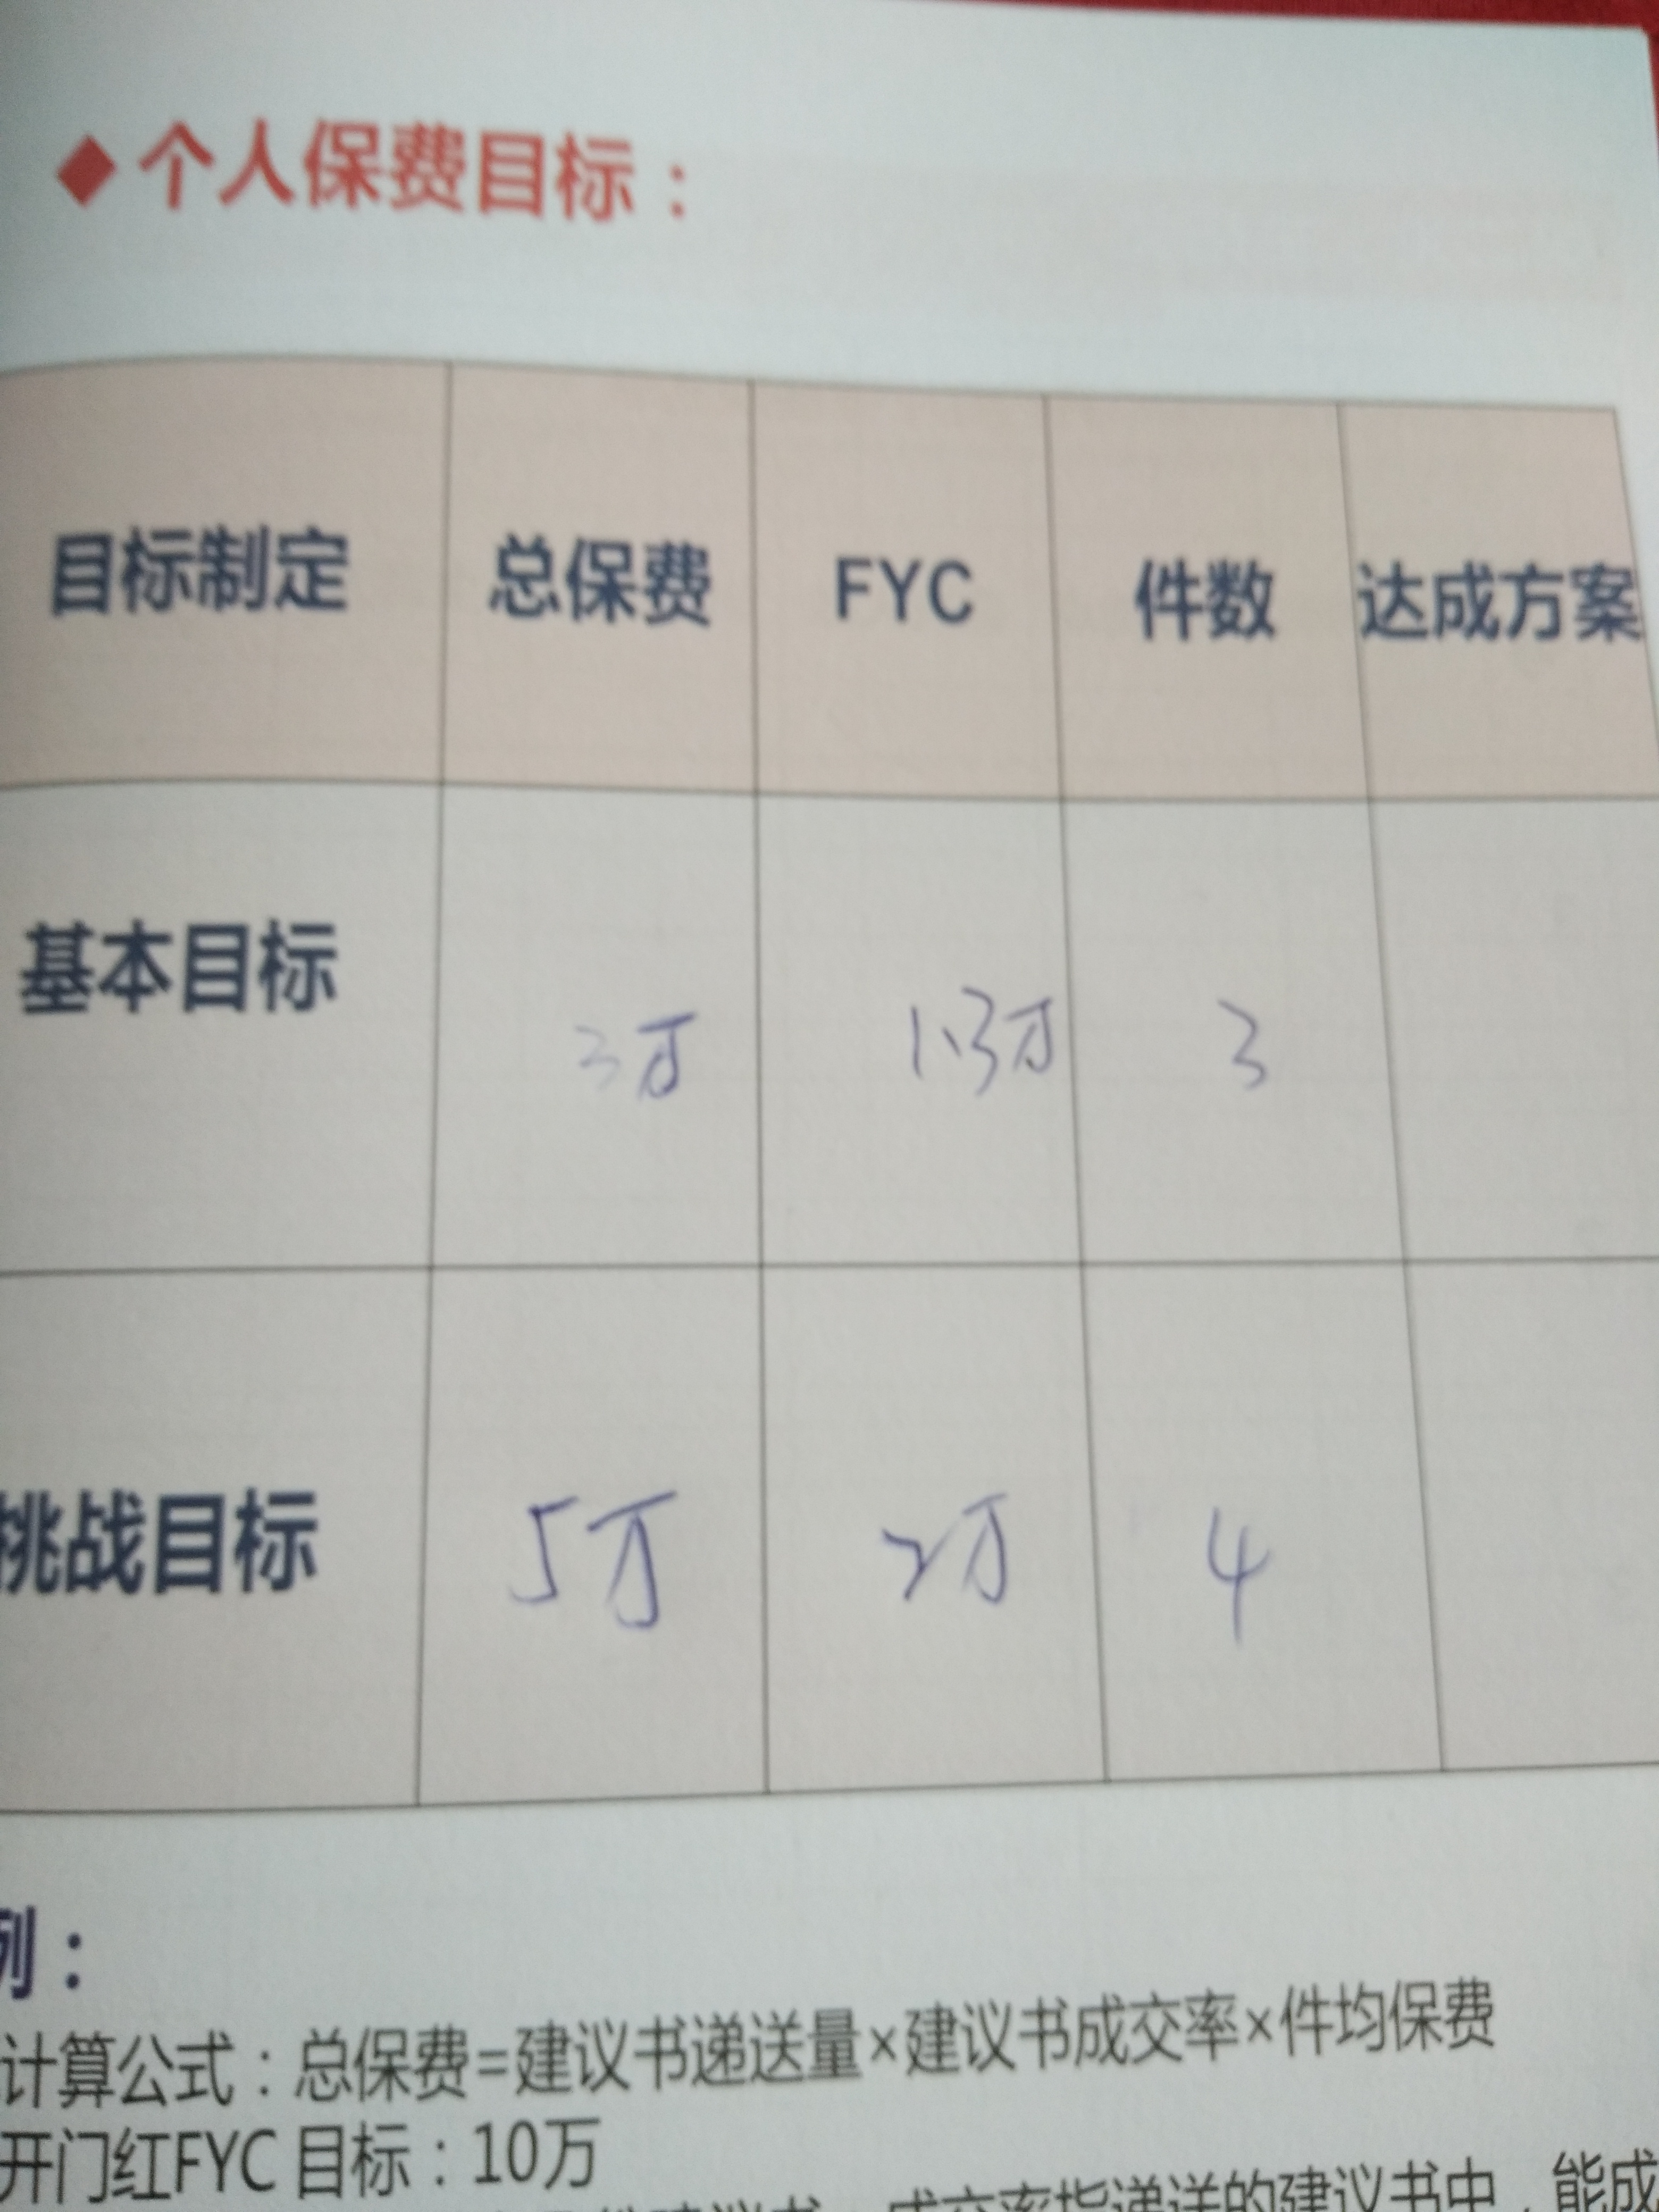 ◆个人保费目标：
目标制定 总保费 FYC 件数 达成方案
基本目标 3万 1.3万 3
挑战目标 5万 2万 4
例：
计算公式：总保费=建议书递送量×建议书成交率×件均保费
开门红FYC 目标：10万
建议书，成交率指递送的建议书中，能成